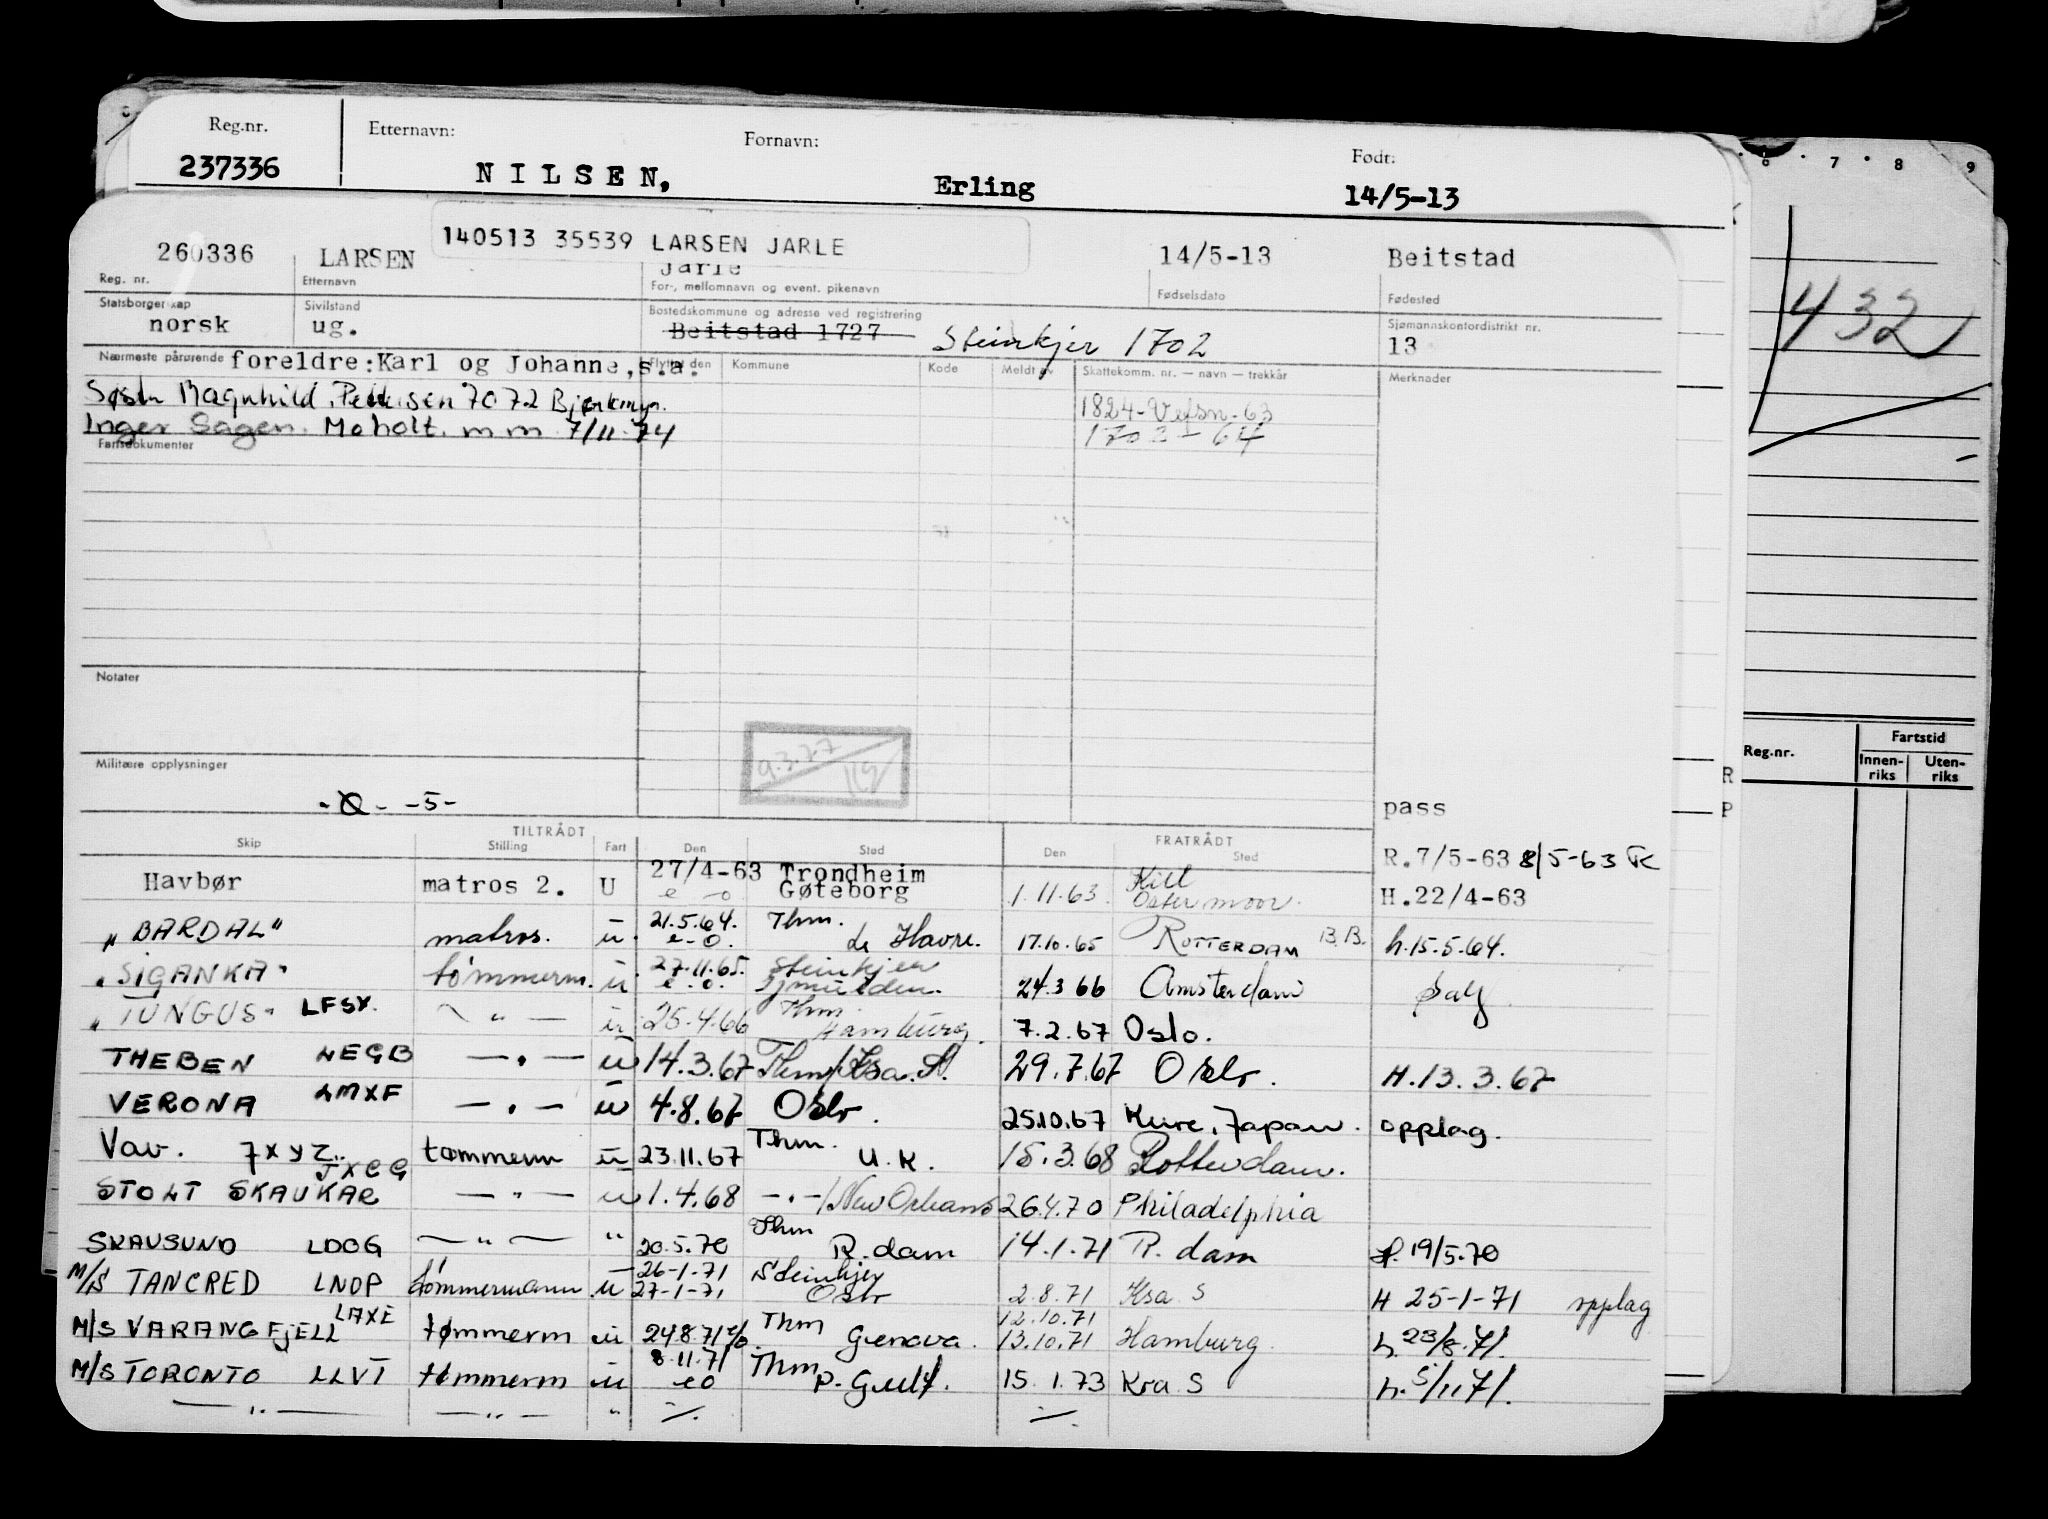 Reg.nr. Etternavn: Fornavn: Født:
237336 NILSEN, Erling 14/5-13
6 · 7 · 8 9
432
260336 LARSEN 140513 35539 LARSEN JARLE 14/5-13 Beitstad
Jarle
Reg. nr. Etternavn For-, mellomnavn og event. pikenavn Fødselsdato Fødested
Statsborgerskap Sivilstand Bostedskommune og adresse ved registrering Sjømannskontordistrikt nr.
norsk ug. Beitstad 1727 Steinkjer 1702 13
Nærmeste pårørende foreldre:Karl og Johanne,s.a. Flyttet den Kommune Kode Meldt av Skattekomm. nr. — navn — trekkår Merknader
Magnhild Pettersen 7072 1824-Vefsn-63
Inger Sagen. Moholt. m m 7/11-74 1702 - 64
Fartsdokumenter
Notater
9.3.77
Militære opplysninger
-5-
pass
Reg.nr. Fartstid
Innen-riks Uten-riks
R
P
TILTRÅDT FRATRÅDT
Skip Stilling Fart Den Sted Den Sted
R.7/5-63 8/5-63 TK
Havbør matros 2. U 27/4-63 Trondheim
e - o Gøteborg 1.11.63. Kiel Ostermoor. H.22/4-63
"BARDAL" matros. u 21.5.64. e-o. Thm. le Havre. 17.10.65 ROTTERDAM B.B. h.15.5.64.
"SIGANKA" tømmerm. u 27.11.65. e.o. Steinkjer Ijmuiden. 24.3 66 Amsterdam
"TUNGUS" LFSX. — " — u 25.4.66 Thm. Hamburg. 7.2.67 Oslo.
THEBEN LEGB — " — u 14.3.67 29.7.67 Oslo. H.13.3.67
VERONA LMXF — " — u 4.8.67 Oslo. 25.10.67 Kure, Japan. opplag.
Vav. JXYZ.. tømmerm u 23.11.67 Thm. U.K. 15.3.68 Rotterdam.
STOLT SKAUKAR JXCG — " — u 1.4.68 — " —/New Orleans 26.4.70 Philadelphia
SKAUSUND LDOG — " — " 20.5.70 Thm R.dam 14.1.71 R.dam H. 19/5.70
M/S TANCRED LNDP tømmermann u 26-1-71 27-1-71 Steinkjer Oslo 2.8.71 Ksa S H 25-1-71 opplag
M/S VARANGFJELL LAXE tømmerm u 24.8.71 e/o Thm Genova. 12.10.71 13.10.71 Hamburg. h. 23/8.71.
M/S TORONTO LLVT tømmerm u 8.11.71 eo Thm P. Gulf. 15.1.73 Kra S h. 5/11.71.
— " — — " — " ./. ./.